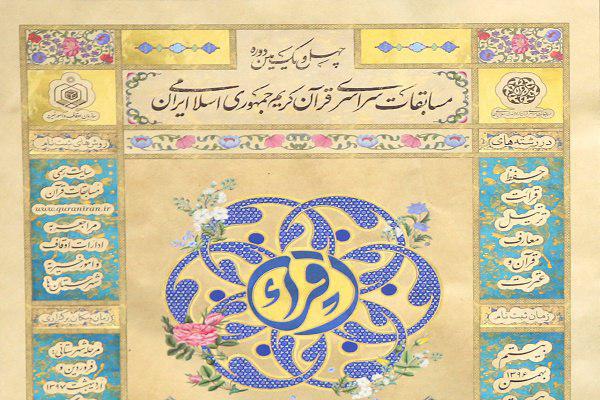 چهل و یکمین دوره
مسابقات سراسری قرآن کریم جمهوری اسلامی ایران
سازمان اوقاف و امور خیریه
در رشته‌های
حفظ
قرائت
ترتیل
معارف
قرآن و
عترت
زمان ثبت نام
بیستم
بهمن
۱۳۹۶
روش‌های ثبت نام
سایت رسمی
مسابقات قرآن
www.quraniran.ir
مراجعه به
ادارات اوقاف
و امور خیریه
شهرستان‌ها
زمان و مکان برگزاری
مرحله شهرستانی:
فروردین و
اردیبهشت ۱۳۹۷
اقراء